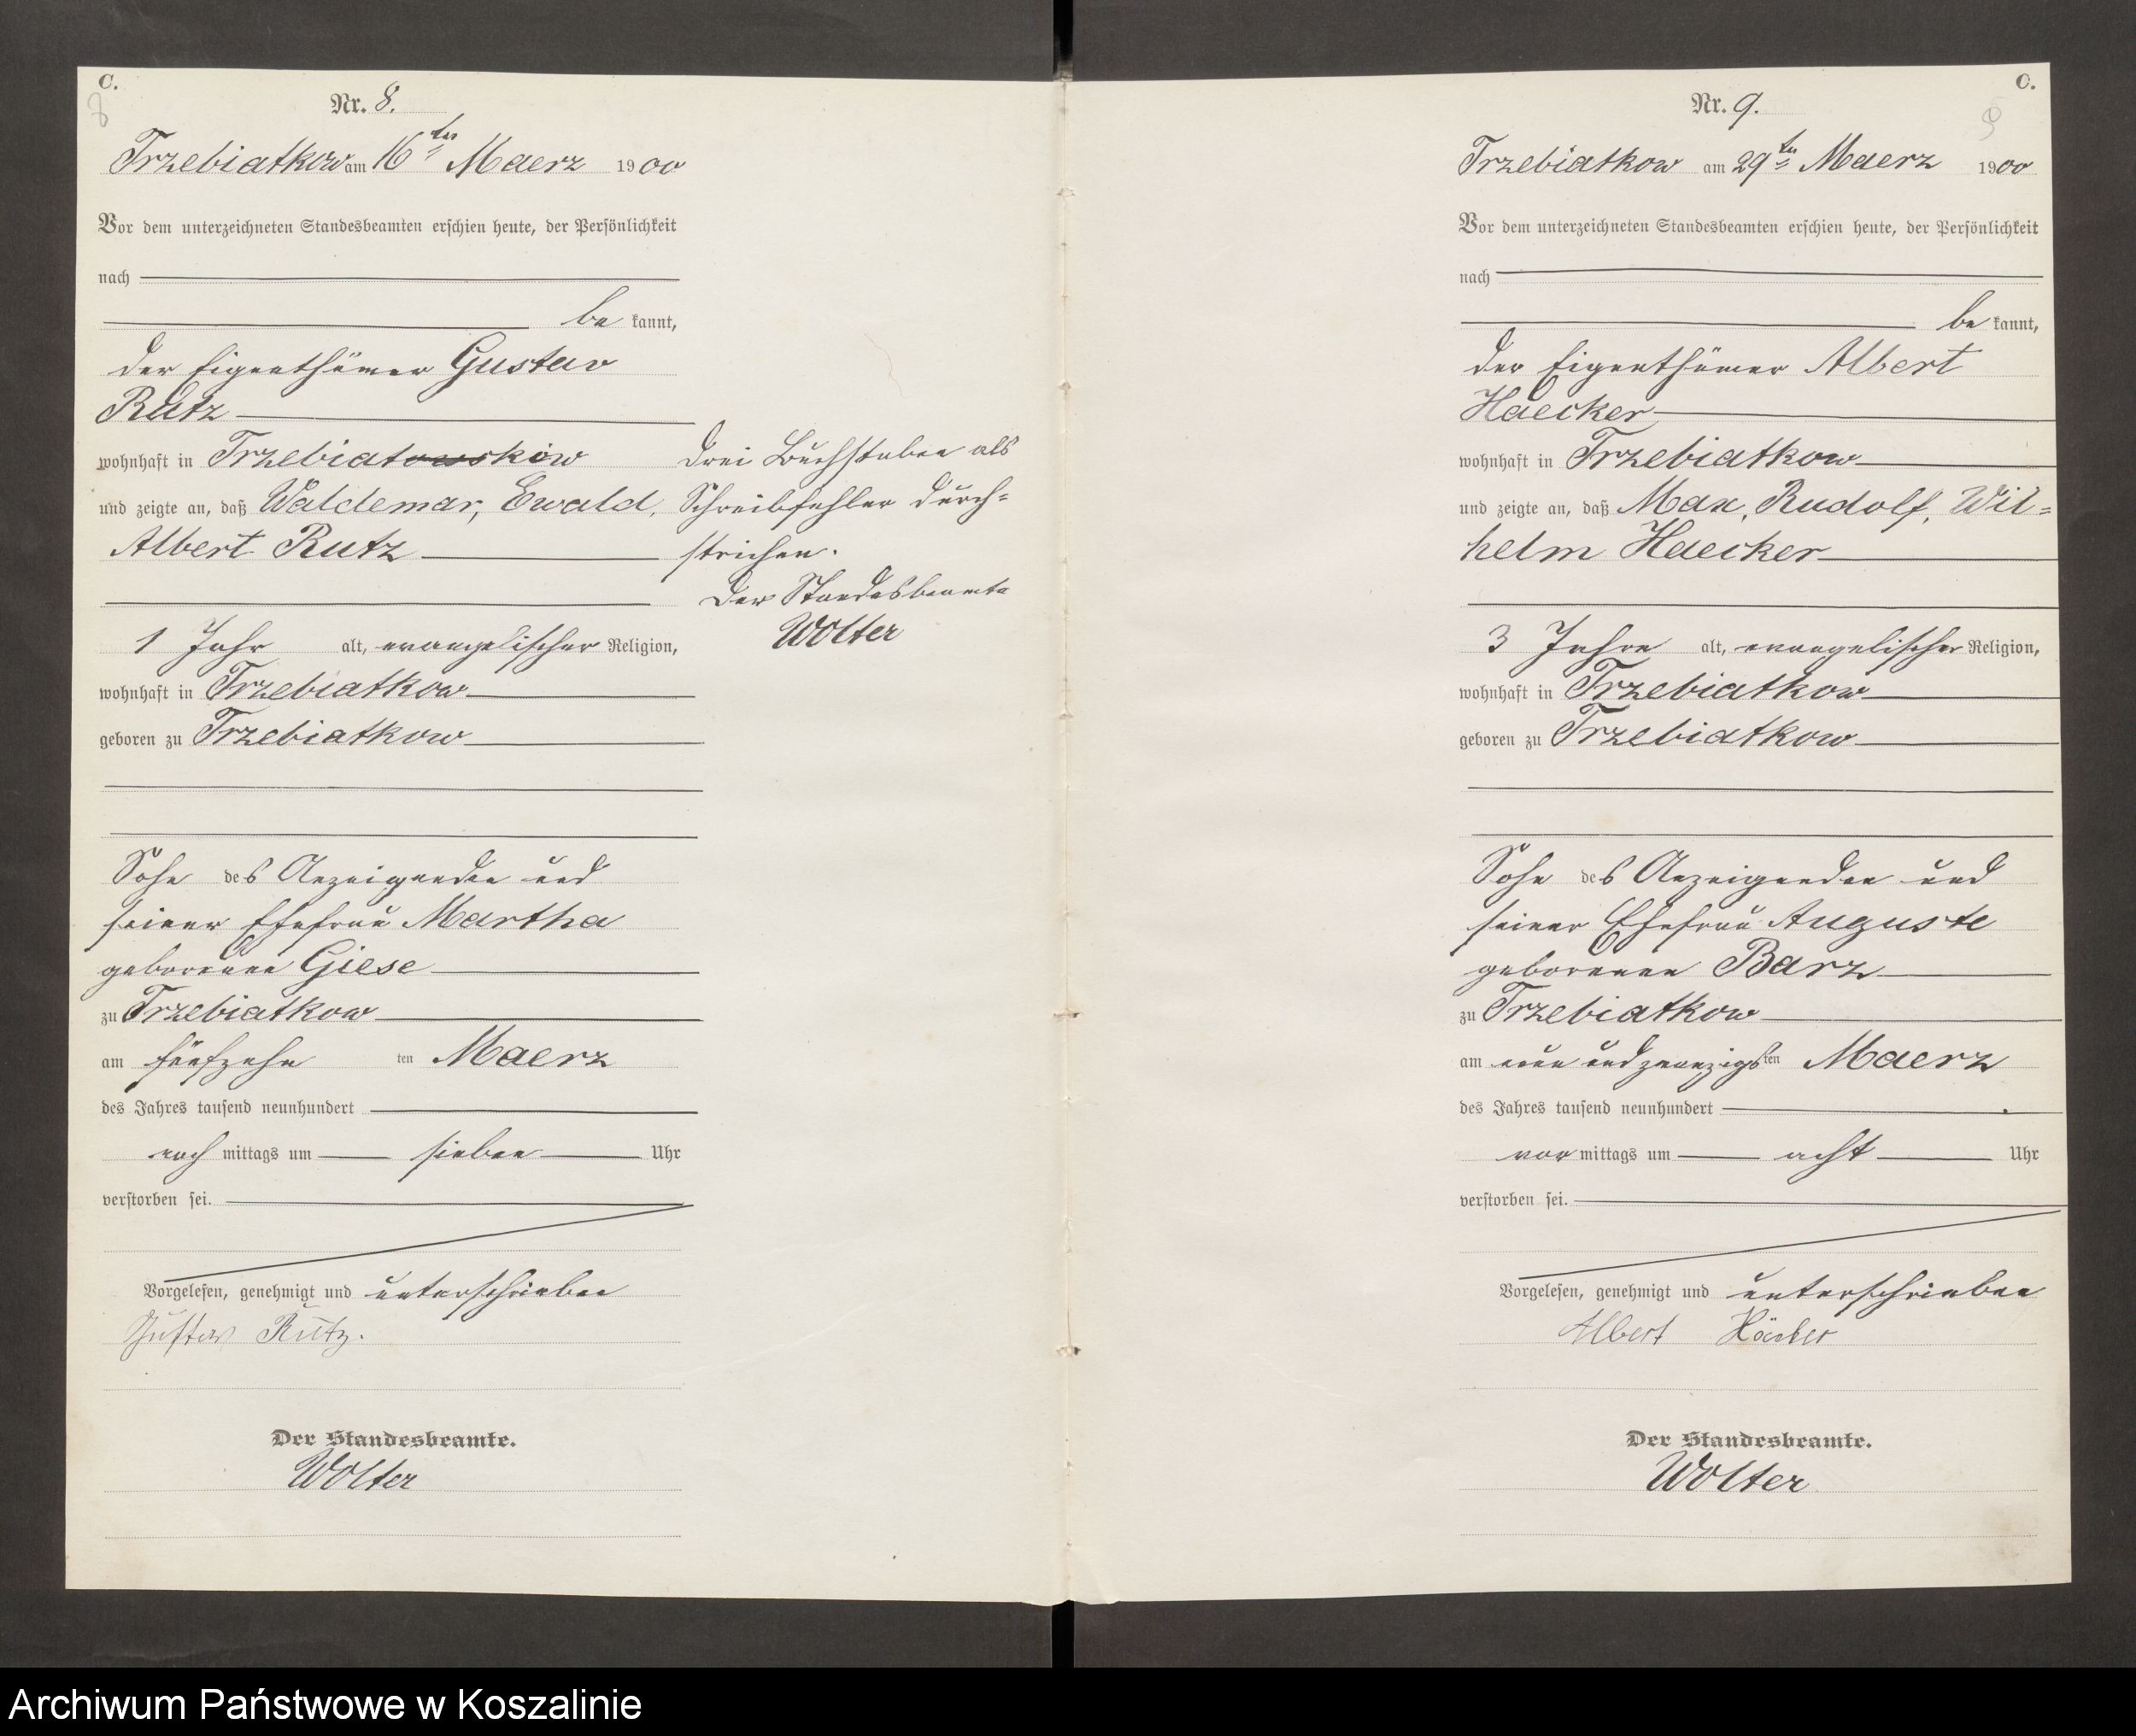 C.
8
Nr. 8.
Trzebiatkow am 16ten Maerz 1900
Vor dem unterzeichneten Standesbeamten erschien heute, der Persönlichkeit
nach
be kannt,
der Eigenthümer Gustav
Rutz
wohnhaft in Trzebiatowskow
und zeigte an, daß Waldemar, Ewald,
Albert Rutz
1 Jahr alt, evangelischer Religion,
wohnhaft in Trzebiatkow
geboren zu Trzebiatkow
Sohn des Anzeigenden und
seiner Ehefrau Martha
geborenen Giese
zu Trzebiatkow
am fünfzehn ten Maerz
des Jahres tausend neunhundert
nach mittags um sieben Uhr
verstorben sei.
Vorgelesen, genehmigt und unterschrieben
Gustav Rutz.
Der Standesbeamte.
Wolter
Drei Buchstaben als
Schreibfehler durch=
strichen.
Der Standesbeamte
Wolter
C.
9
Nr. 9.
Trzebiatkow am 29ten Maerz 1900
Vor dem unterzeichneten Standesbeamten erschien heute, der Persönlichkeit
nach
be kannt,
der Eigenthümer Albert
Haecker
wohnhaft in Trzebiatkow
und zeigte an, daß Max, Rudolf, Wil=
helm Haecker
3 Jahre alt, evangelischer Religion,
wohnhaft in Trzebiatkow
geboren zu Trzebiatkow
Sohn des Anzeigenden und
seiner Ehefrau Auguste
geborenen Barz
zu Trzebiatkow
am neun und zwanzigsten Maerz
des Jahres tausend neunhundert
vor mittags um acht Uhr
verstorben sei.
Vorgelesen, genehmigt und unterschrieben
Albert Häcker
Der Standesbeamte.
Wolter
Archiwum Państwowe w Koszalinie